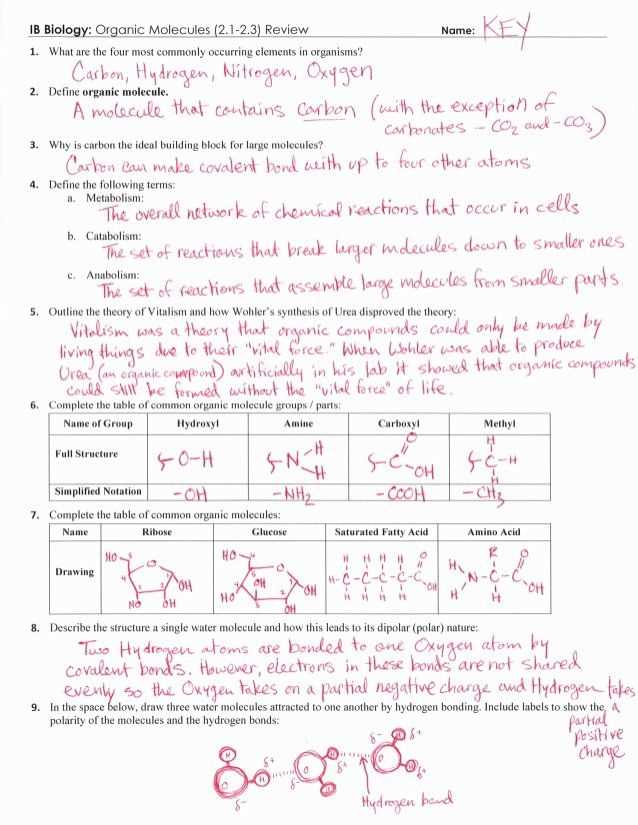 IB Biology: Organic Molecules (2.1-2.3) Review Name: KEY
1. What are the four most commonly occurring elements in organisms?
Carbon, Hydrogen, Nitrogen, Oxygen
2. Define organic molecule.
A molecule that contains Carbon (with the exception of
carbonates - CO2 and -CO3)
3. Why is carbon the ideal building block for large molecules?
Carbon can make covalent bond with up to four other atoms
4. Define the following terms:
a. Metabolism:
The overall network of chemical reactions that occur in cells
b. Catabolism:
The set of reactions that break larger molecules down to smaller ones
c. Anabolism:
The set of reactions that assemble large molecules from smaller parts.
5. Outline the theory of Vitalism and how Wohler's synthesis of Urea disproved the theory:
Vitalism was a theory that organic compounds could only be made by
living things due to their "vital force." When Wohler was able to produce
Urea (an organic compound) artificially in his lab it showed that organic compounds
could still be formed without the "vital force" of life.
6. Complete the table of common organic molecule groups / parts:
Name of Group Hydroxyl Amine Carboxyl Methyl
Full Structure O-H N H H C O OH H C-H H
Simplified Notation -OH -NH2 -COOH -CH3
7. Complete the table of common organic molecules:
Name Ribose Glucose Saturated Fatty Acid Amino Acid
Drawing
HO 5 O 4 1 OH 3 2 HO OH
HO 6 O OH OH HO OH
H H H H O
H-C-C-C-C-C OH
H H H H
R O
H N-C-C OH
H H
8. Describe the structure a single water molecule and how this leads to its dipolar (polar) nature:
Two Hydrogen atoms are bonded to one Oxygen atom by
covalent bonds. However, electrons in these bonds are not shared
evenly so the Oxygen takes on a partial negative charge and Hydrogen takes
A
partial
positive
charge
9. In the space below, draw three water molecules attracted to one another by hydrogen bonding. Include labels to show the
polarity of the molecules and the hydrogen bonds:
δ- H δ+
H δ+ H O H
O H δ- O δ+
δ- H
Hydrogen bond